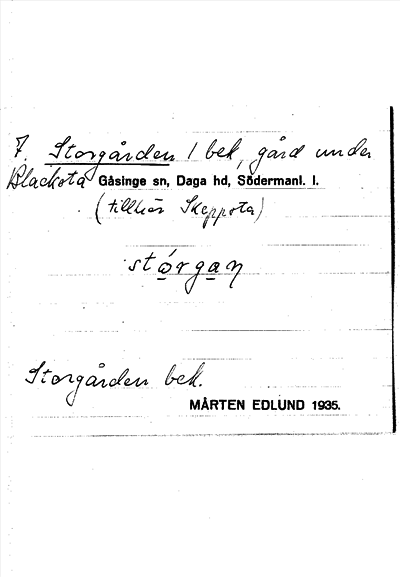 7. Storgården 1 bek, gård under
Blacksta Gåsinge sn, Daga hd, Södermanl. l.
(tillhör Skeppsta)
stórgaŋ
Storgården bek.
MÅRTEN EDLUND 1935.